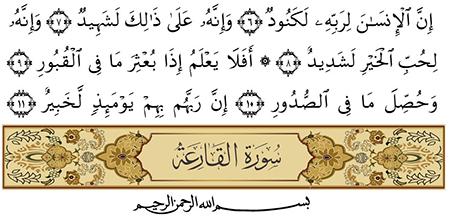 إِنَّ ٱلْإِنسَـٰنَ لِرَبِّهِۦ لَكَنُودٌ ﴿٦﴾ وَإِنَّهُۥ عَلَىٰ ذَٰلِكَ لَشَهِيدٌ ﴿٧﴾ وَإِنَّهُۥ
لِحُبِّ ٱلْخَيْرِ لَشَدِيدٌ ﴿٨﴾ * أَفَلَا يَعْلَمُ إِذَا بُعْثِرَ مَا فِى ٱلْقُبُورِ ﴿٩﴾
وَحُصِّلَ مَا فِى ٱلصُّدُورِ ﴿١٠﴾ إِنَّ رَبَّهُم بِهِمْ يَوْمَئِذٍ لَّخَبِيرٌۢ ﴿١١﴾
سُورَةُ القَارِعَةِ
بسم الله الرحمن الرحيم